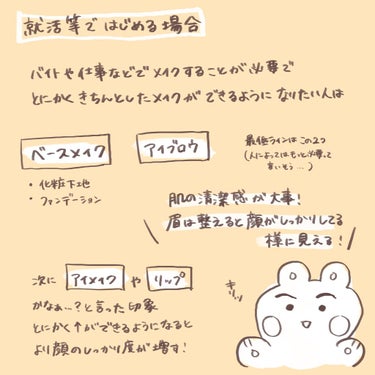 就活等で はじめる場合
バイトや仕事などでメイクすることが必要で
とにかく きちんとしたメイクが できるように なりたい人は
ベースメイク
アイブロウ
最低ラインは この2つ
(人によってはもっと必要って
言いそう…)
・化粧下地
・ファンデーション
肌の清潔感が大事!
眉は整えると顔がしっかりしてる
様に見える!
次に アイメイク や リップ
かなぁ…?と言った印象
とにかく↑ができるようになると
より顔のしっかり度が増す!
キリッ